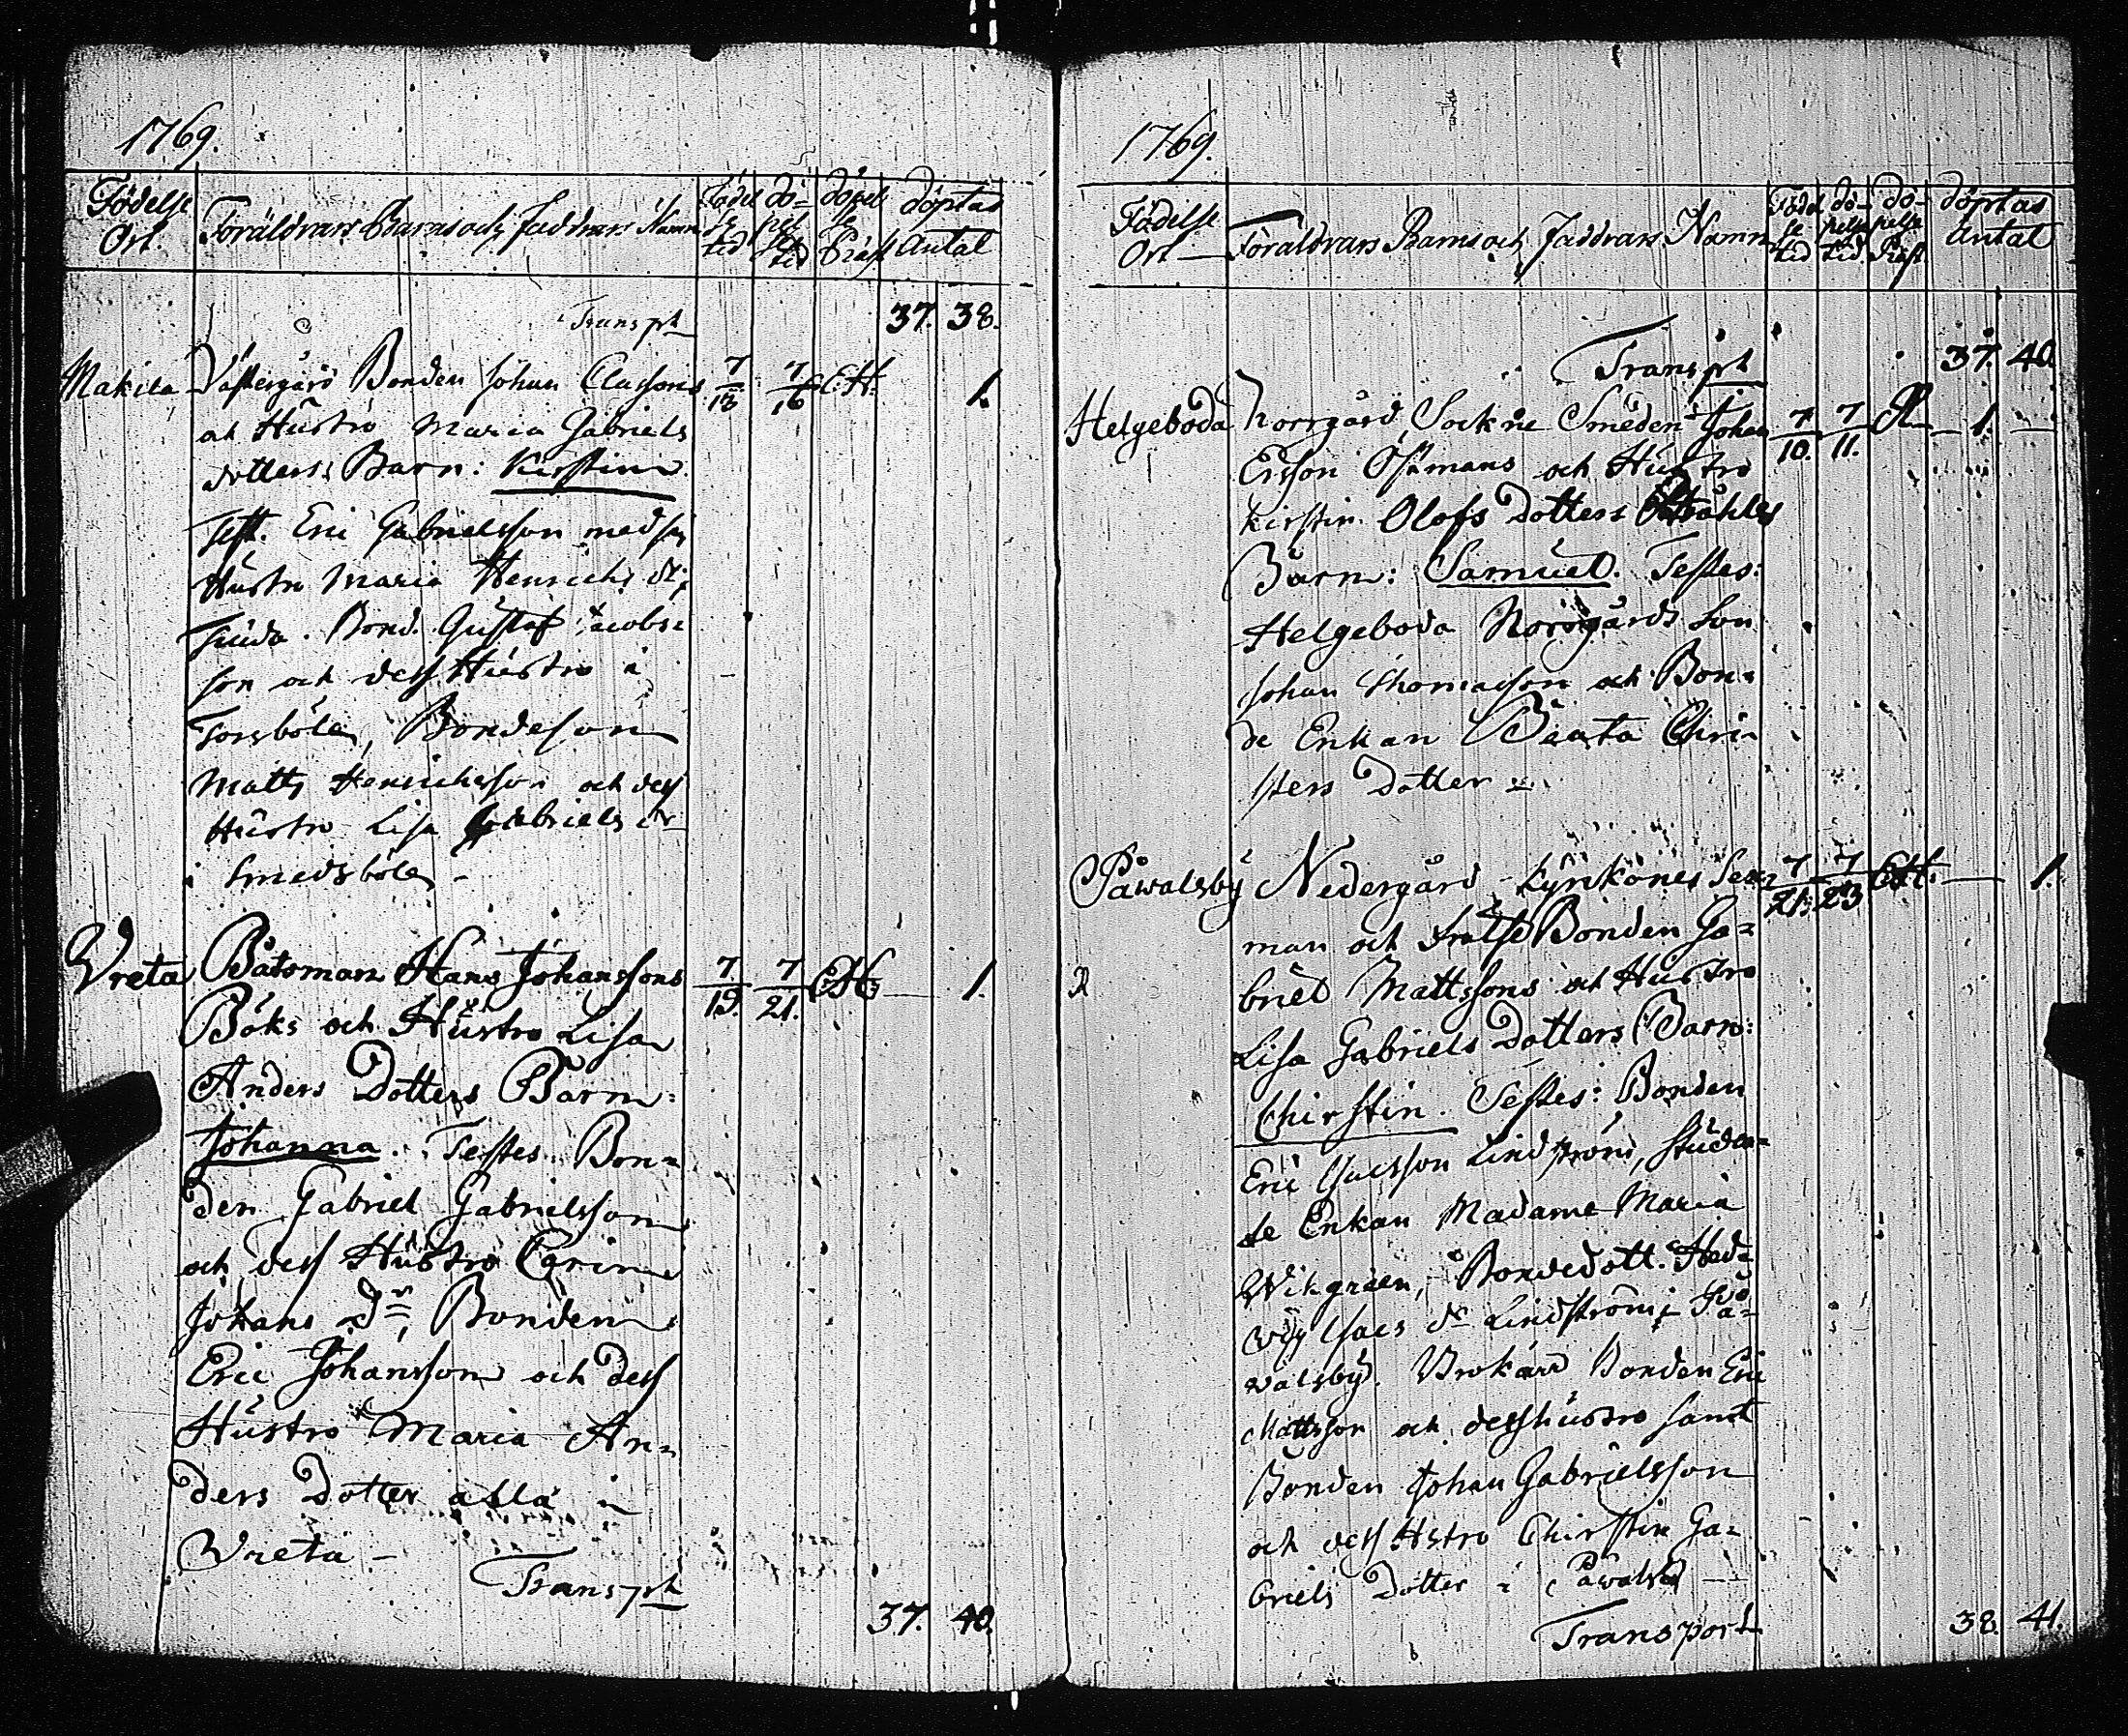 1769.
Födelse Ort. Föräldrars Barns och Faddrars Namn Födelse tid döpelse tid döpelse Präst döptas Antal
Transpt 37. 38.
Makila Västergård Bonden Johan Classons 7/13 7/16 EH. 1.
och Hustro Maria Gabriels
dotters Barn: Kirstin.
Test. Eric Gabrielsson med sin
Hustro Maria Henrichs d:r
Bond. Gustaf Jacobs=
son och dess Hustro i
Torsböle, Bondeson
Matts Henrichsson och dess
Hustro Lisa Gabriels dr
i Smedsböle
Vreta Båtsman Hans Johanssons 7/19. 7/21. EH. 1.
Böks och Hustro Lisa
Anders Dotters Barn:
Johanna. Testes. Bon=
den Gabriel Gabrielsson
och dess Hustro Carin
Johans dr, Bonden
Eric Johansson och dess
Hustro Maria An=
ders Dotter alla i
Vreta –
Transpt
37. 40.
1769.
Födelse Ort Föräldrars Barns och Faddrars Namn Födelse tid döpelse tid döpelse Präst döptas Antal
Transpt 37. 40.
Helgeboda Norrgård Sockne Smeden Johan 7/10. 7/11. 1.
Ersson Östmans och Hustro
Kirstin Olofs Dotters Stråhles
Barn: Samuel. Testes:
Helgeboda Norrgårds Son
Johan Thomasson och Bon=
de Enkan Beata Chri=
sters Dotter
Påwalsby Nedergård Kyrkones Sex= 7/21. 7/23 EH. 1.
man och Frälse Bonden Ga=
briel Mattssons och Hustro
Lisa Gabriels Dotters Barn:
Chirstin. Testes: Bonden
Eric Isacsson Lindström, Studen=
te Enkan Madame Maria
Wikgreen, Bondedott. Hed=
wig Isacs dr Lindström i På=
walsby. Brokärr Bonden Eric
Mattsson och dess hustro samt
Bonden Johan Gabrielsson
och dess Hstro Chirstin Ga=
briels Dotter i Påwalsb
Transport 38. 41.